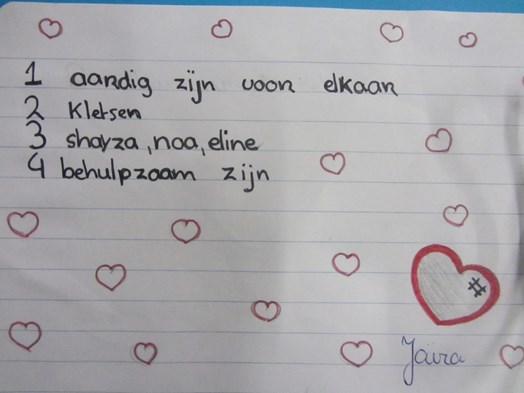 1 aardig zijn voor elkaar
2 Kletsen
3 shayza, noa, eline
4 behulpzaam zijn
#
Jaira